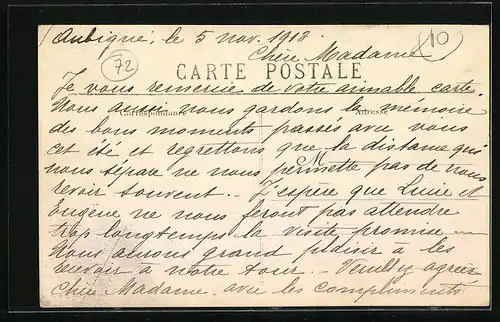 Aubigné, le 5 nov. 1913
10
72
Chère Madame
CARTE POSTALE
Je vous remercie de votre aimable carte.
Nous aussi nous gardons la mémoire
Correspondance
Adresse
des bons moments passés avec vous
cet été et regrettons que la distance qui
M
nous sépare ne nous permette pas de vous
revoir souvent. - J'espère que Lucie et
Eugène ne nous feront pas attendre
trop longtemps la visite promise
Nous aurons grand plaisir à les
recevoir à notre tour. - Veuillez agréer
Chère Madame, avec les compliments